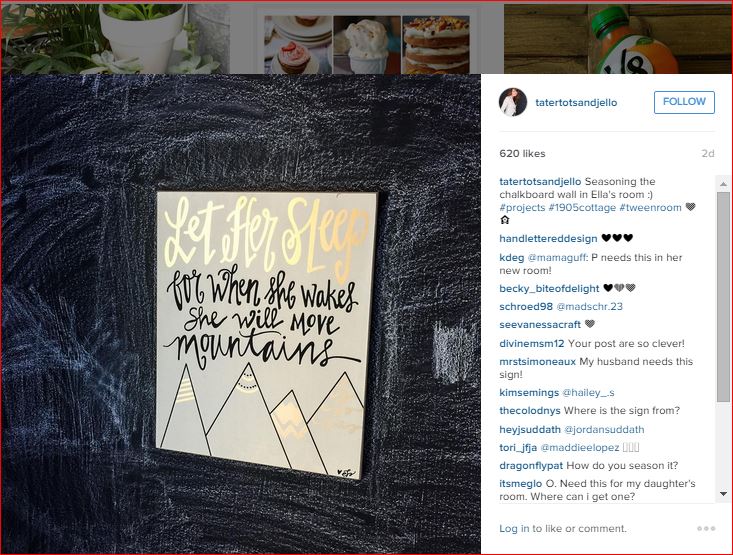 V8
tatertotsandjello
FOLLOW
620 likes
2d
Let Her Sleep
for when she wakes
she will move
mountains
tatertotsandjello Seasoning the
chalkboard wall in Ella's room :)
#projects #1905cottage #tweenroom
handlettereddesign
kdeg @mamaguff: P needs this in her
new room!
becky_biteofdelight
schroed98 @madschr.23
seevanessacraft
divinemsm12 Your post are so clever!
mrstsimoneaux My husband needs this
sign!
kimsemings @hailey_.s
thecolodnys Where is the sign from?
heyjsuddath @jordansuddath
tori_jfja @maddieelopez
dragonflypat How do you season it?
itsmeglo O. Need this for my daughter's
room. Where can i get one?
Log in to like or comment.